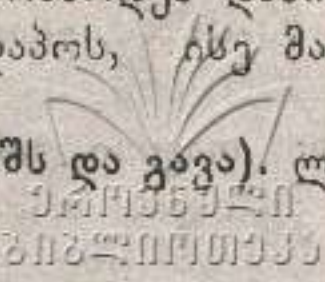 აპოს, ისე მა
შს და გავა). ლ
ეროვნული
ბიბლიოთეკა